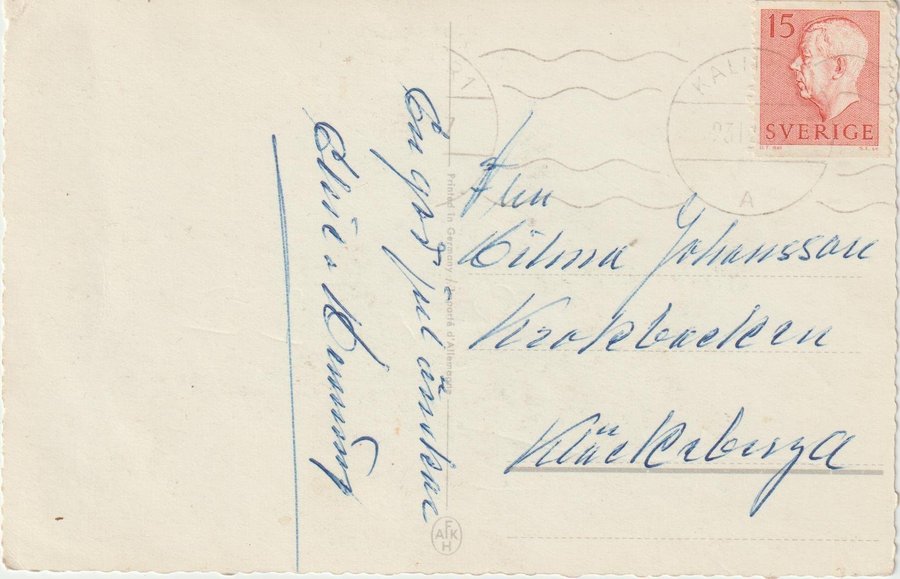 En god jul önskar
Elsie o Henning
Printed in Germany / Importé d'Allemagne
AFKH
15
SVERIGE
KAL
A
1
7
Fru
Hilma Johansson
Krokbacken
Kläckeberga